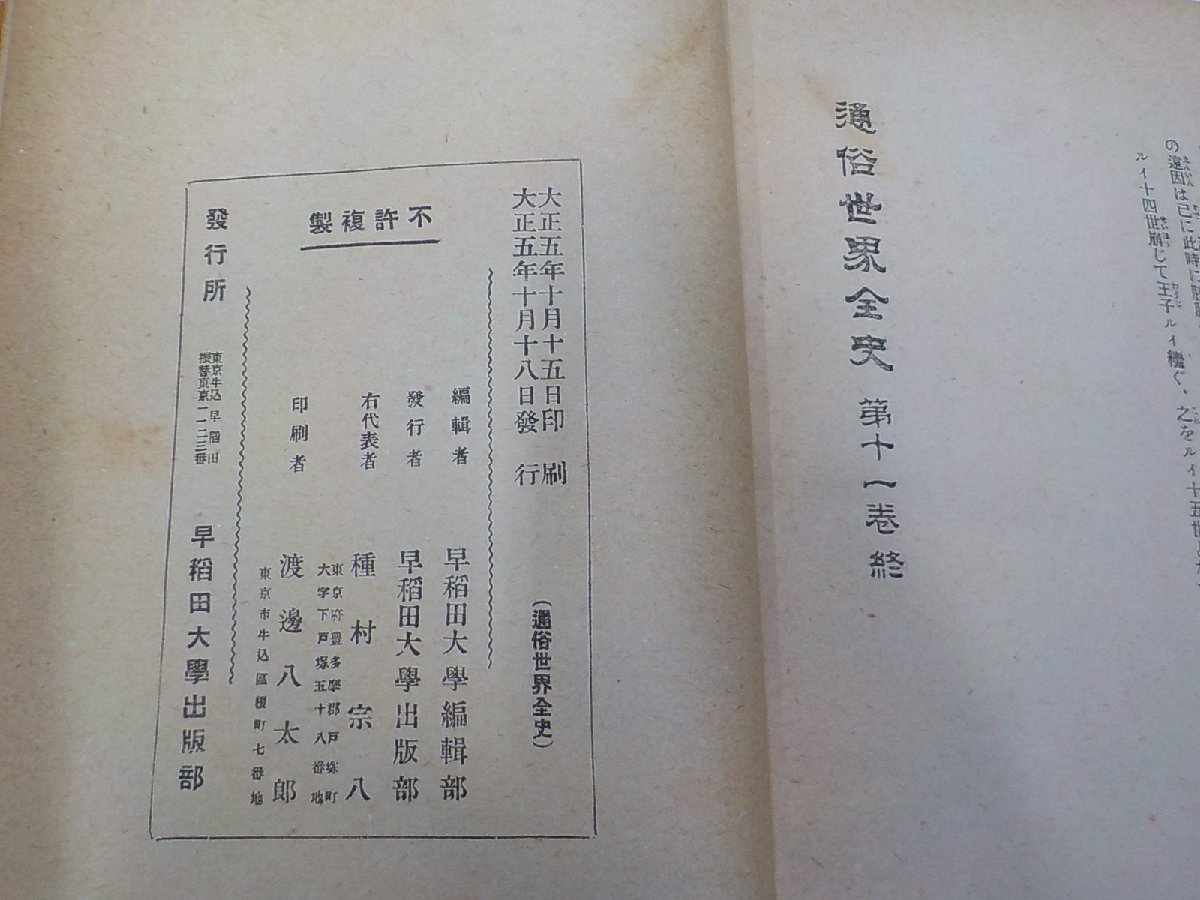 の遠因は已に此時に
ルイ十四世崩じて王子ルイ繼ぐ、之をルイ十五世
通俗世界全史 第十一卷 終
大正五年十月十五日印刷
大正五年十月十八日發行
(通俗世界全史)
不許複製
編輯者 早稻田大學編輯部
發行者 早稻田大學出版部
右代表者 種村宗八
東京府豐多摩郡戸塚町
大字下戸塚五十八番地
印刷者 渡邊八太郎
東京市牛込區榎町七番地
發行所 早稻田大學出版部
東京牛込早稻田
振替東京一一二三番